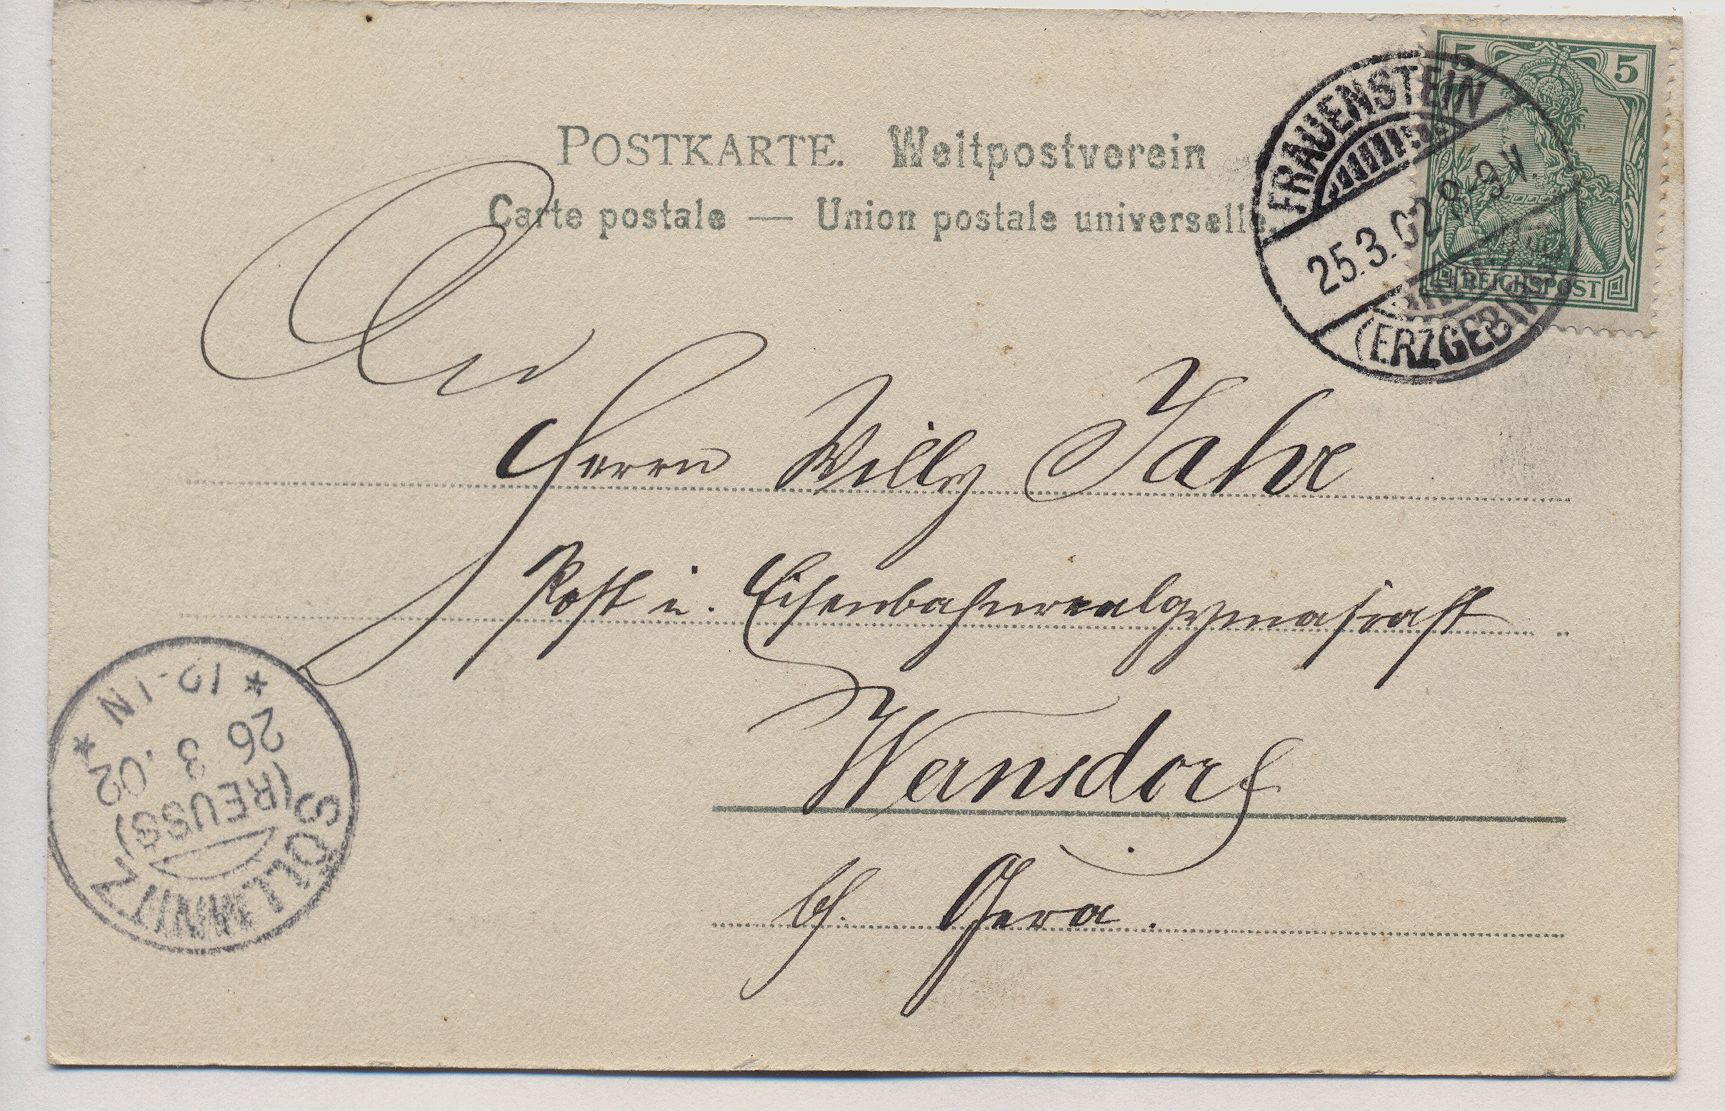 POSTKARTE. Weltpostverein
Carte postale — Union postale universelle.
5 5
REICHSPOST
FRAUENSTEIN
25.3.02 8-9 V.
(ERZGEBIRGE)
An
Herrn Willy Jahr
Post u. Eisenbahn
Wernsdorf
b/. Gera.
SÖLLMNITZ
(REUSS)
26 3.02
* 12-1N *